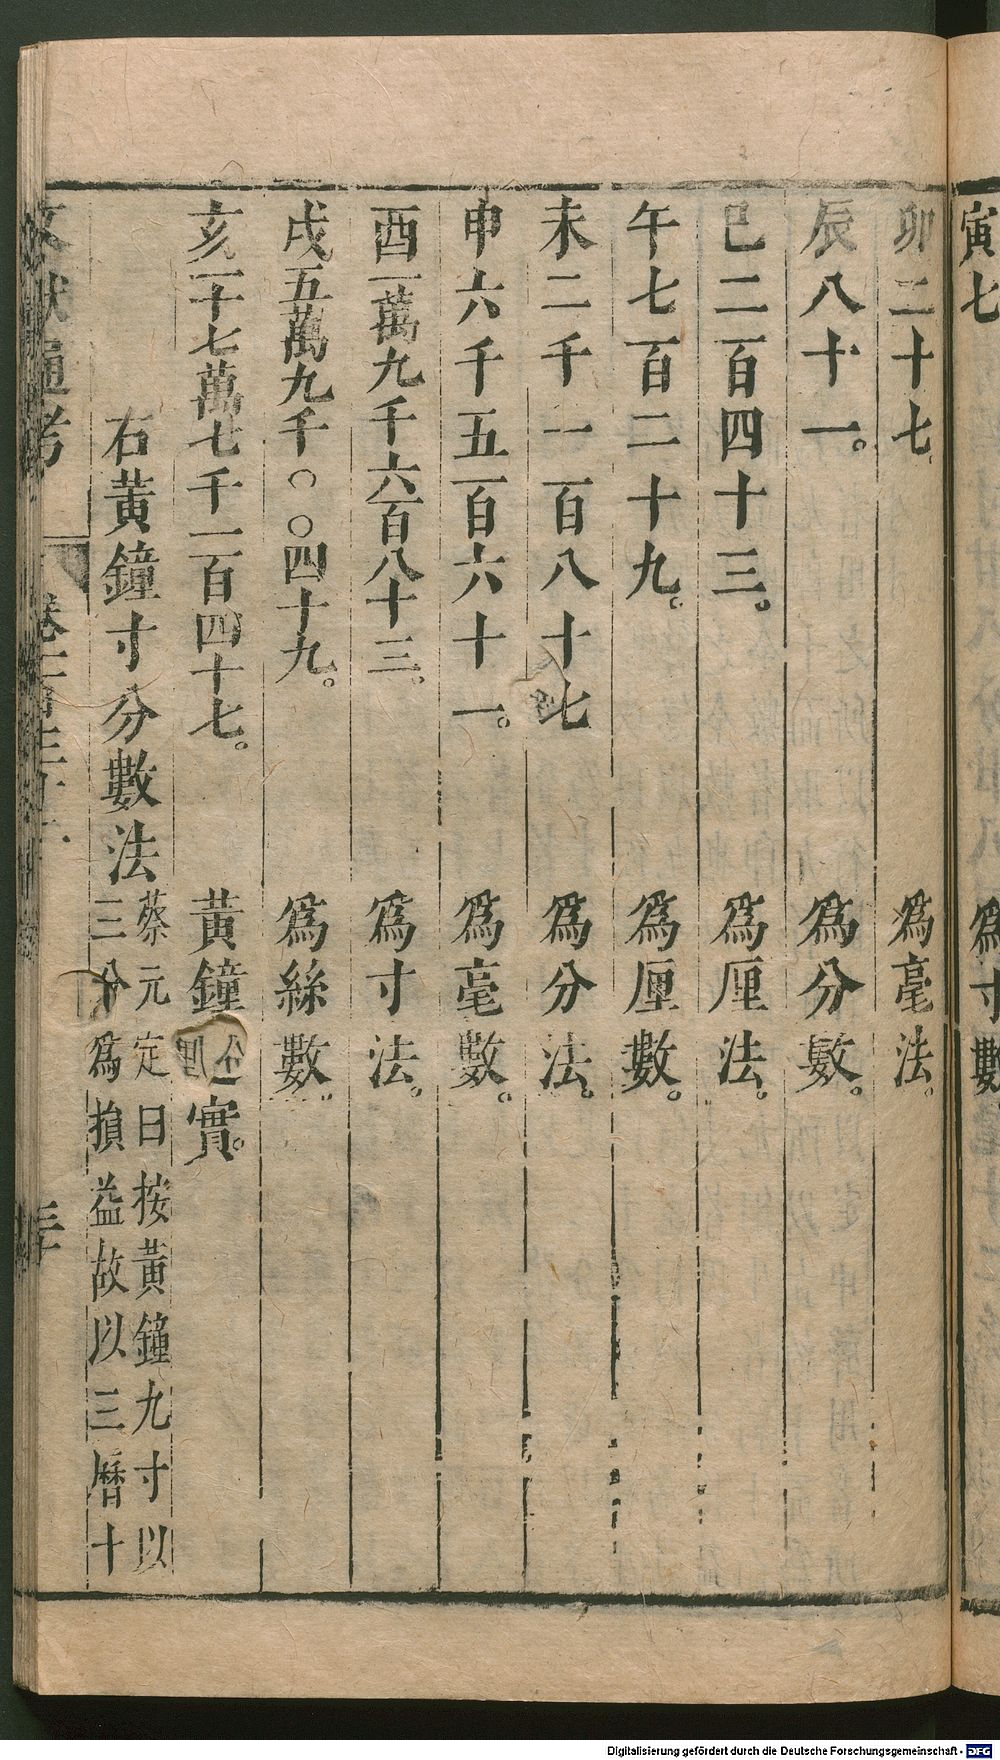 寅七 爲寸數。
卯二十七。 爲毫法。
辰八十一。 爲分數。
巳二百四十三。 爲厘法。
午七百二十九。 爲厘數。
未二千一百八十七 爲分法。
申六千五百六十一。 爲毫數。
酉一萬九千六百八十三。 爲寸法。
戌五萬九千〇〇四十九。 爲絲數。
亥一十七萬七千一百四十七。 黃鐘之實。
右黃鐘寸分數法
蔡元定曰按黃鐘九寸以
三分爲損益故以三曆十
文獻通考 卷一百三十一 三十
Digitalisierung gefördert durch die Deutsche Forschungsgemeinschaft - DFG